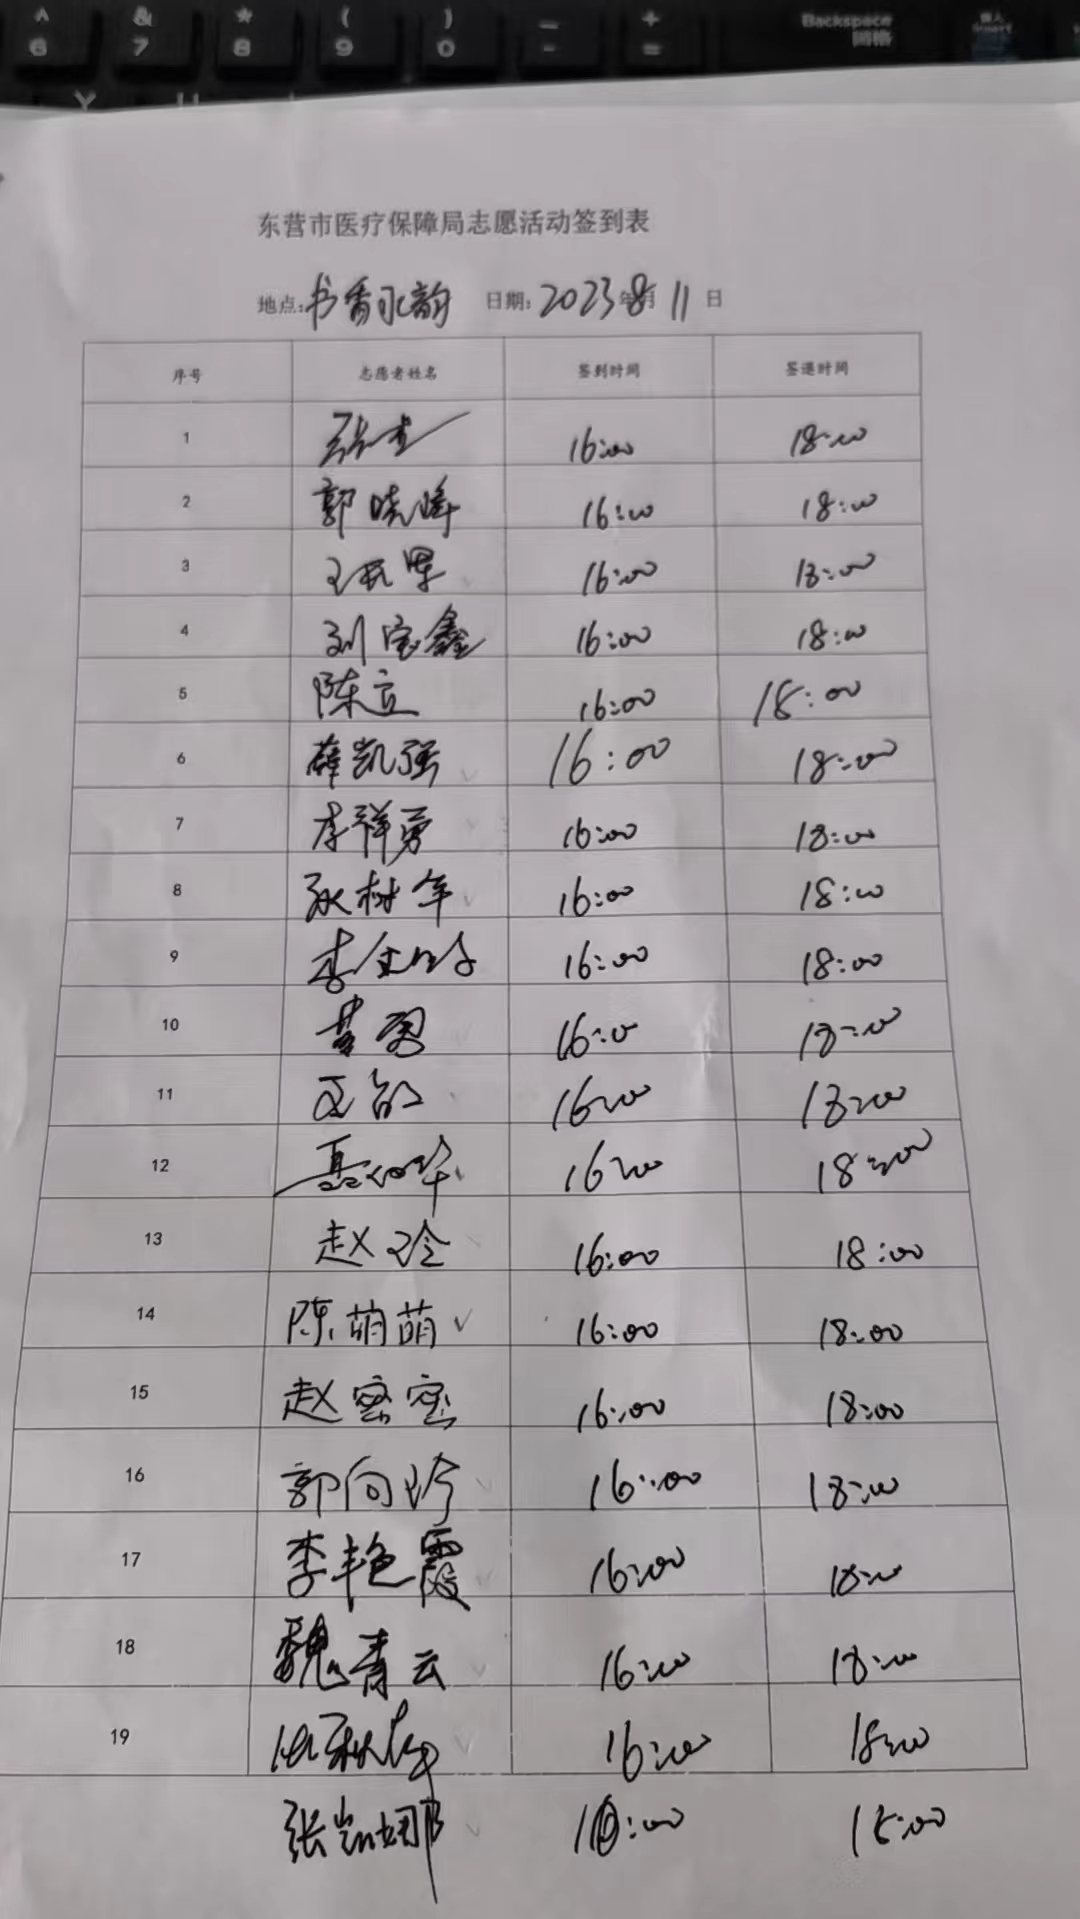 ^ & * ( ) _ + Backspace
6 7 8 9 0 - = 回格
Y U
东营市医疗保障局志愿活动签到表
地点:书香水韵 日期:2023年8月11日
序号 志愿者姓名 签到时间 签退时间
1 16:00 18:00
2 郭晓峰 16:00 18:00
3 16:00 18:00
4 刘宝鑫 16:00 18:00
5 陈立 16:00 18:00
6 薛凯强 16:00 18:00
7 李祥勇 16:00 18:00
8 耿树年 16:00 18:00
9 16:00 18:00
10 16:00 18:00
11 16:00 18:00
12 16:00 18:00
13 赵玲 16:00 18:00
14 陈萌萌 ✓ 16:00 18:00
15 赵密密 16:00 18:00
16 郭向珍 16:00 18:00
17 李艳霞 16:00 18:00
18 魏青云 16:00 18:00
19 16:00 18:00
张凯娜 16:00 18:00